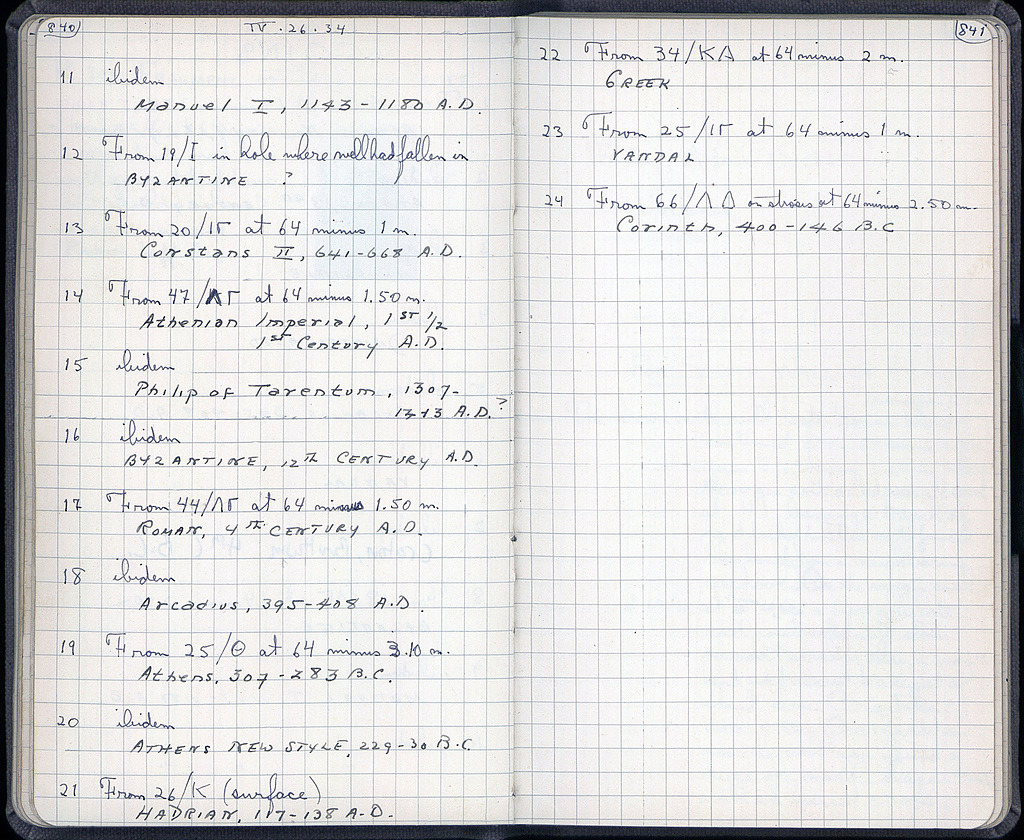 840
IV.26.34
11 ibidem
Manuel I, 1143-1180 A.D.
12 From 19/I in hole where well had fallen in
BYZANTINE ?
13 From 20/ΙΓ at 64 minus 1 m.
Constans II, 641-668 A.D.
14 From 47/ΛΓ at 64 minus 1.50 m.
Athenian Imperial, 1ST 1/2
1st Century A.D.
15 ibidem
Philip of Tarentum, 1307-
1313 A.D.?
16 ibidem
BYZANTINE, 12th CENTURY A.D.
17 From 44/ΛΓ at 64 minus 1.50 m.
ROMAN, 4th CENTURY A.D.
18 ibidem
Arcadius, 395-408 A.D.
19 From 25/Θ at 64 minus 3.10 m.
Athens, 307-283 B.C.
20 ibidem
ATHENS NEW STYLE, 229-30 B.C.
21 From 26/K (surface)
HADRIAN, 117-138 A.D.
841
22 From 34/ΚΔ at 64 minus 2 m.
GREEK
23 From 25/ΙΓ at 64 minus 1 m.
VANDAL
24 From 66/ΛΔ at 64 minus 2.50 m.
Corinth, 400-146 B.C